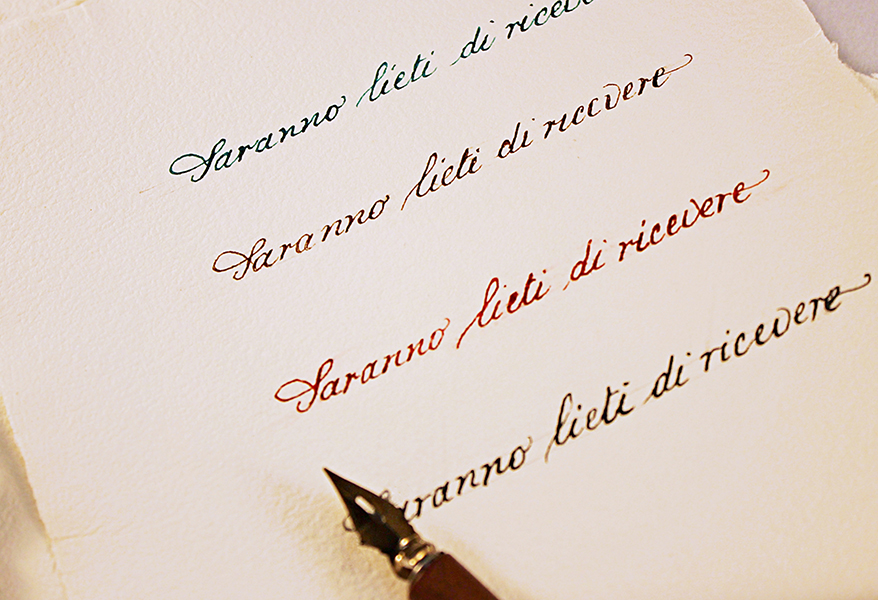 Saranno lieti di riceve
Saranno lieti di ricevere
Saranno lieti di ricevere
Saranno lieti di ricevere